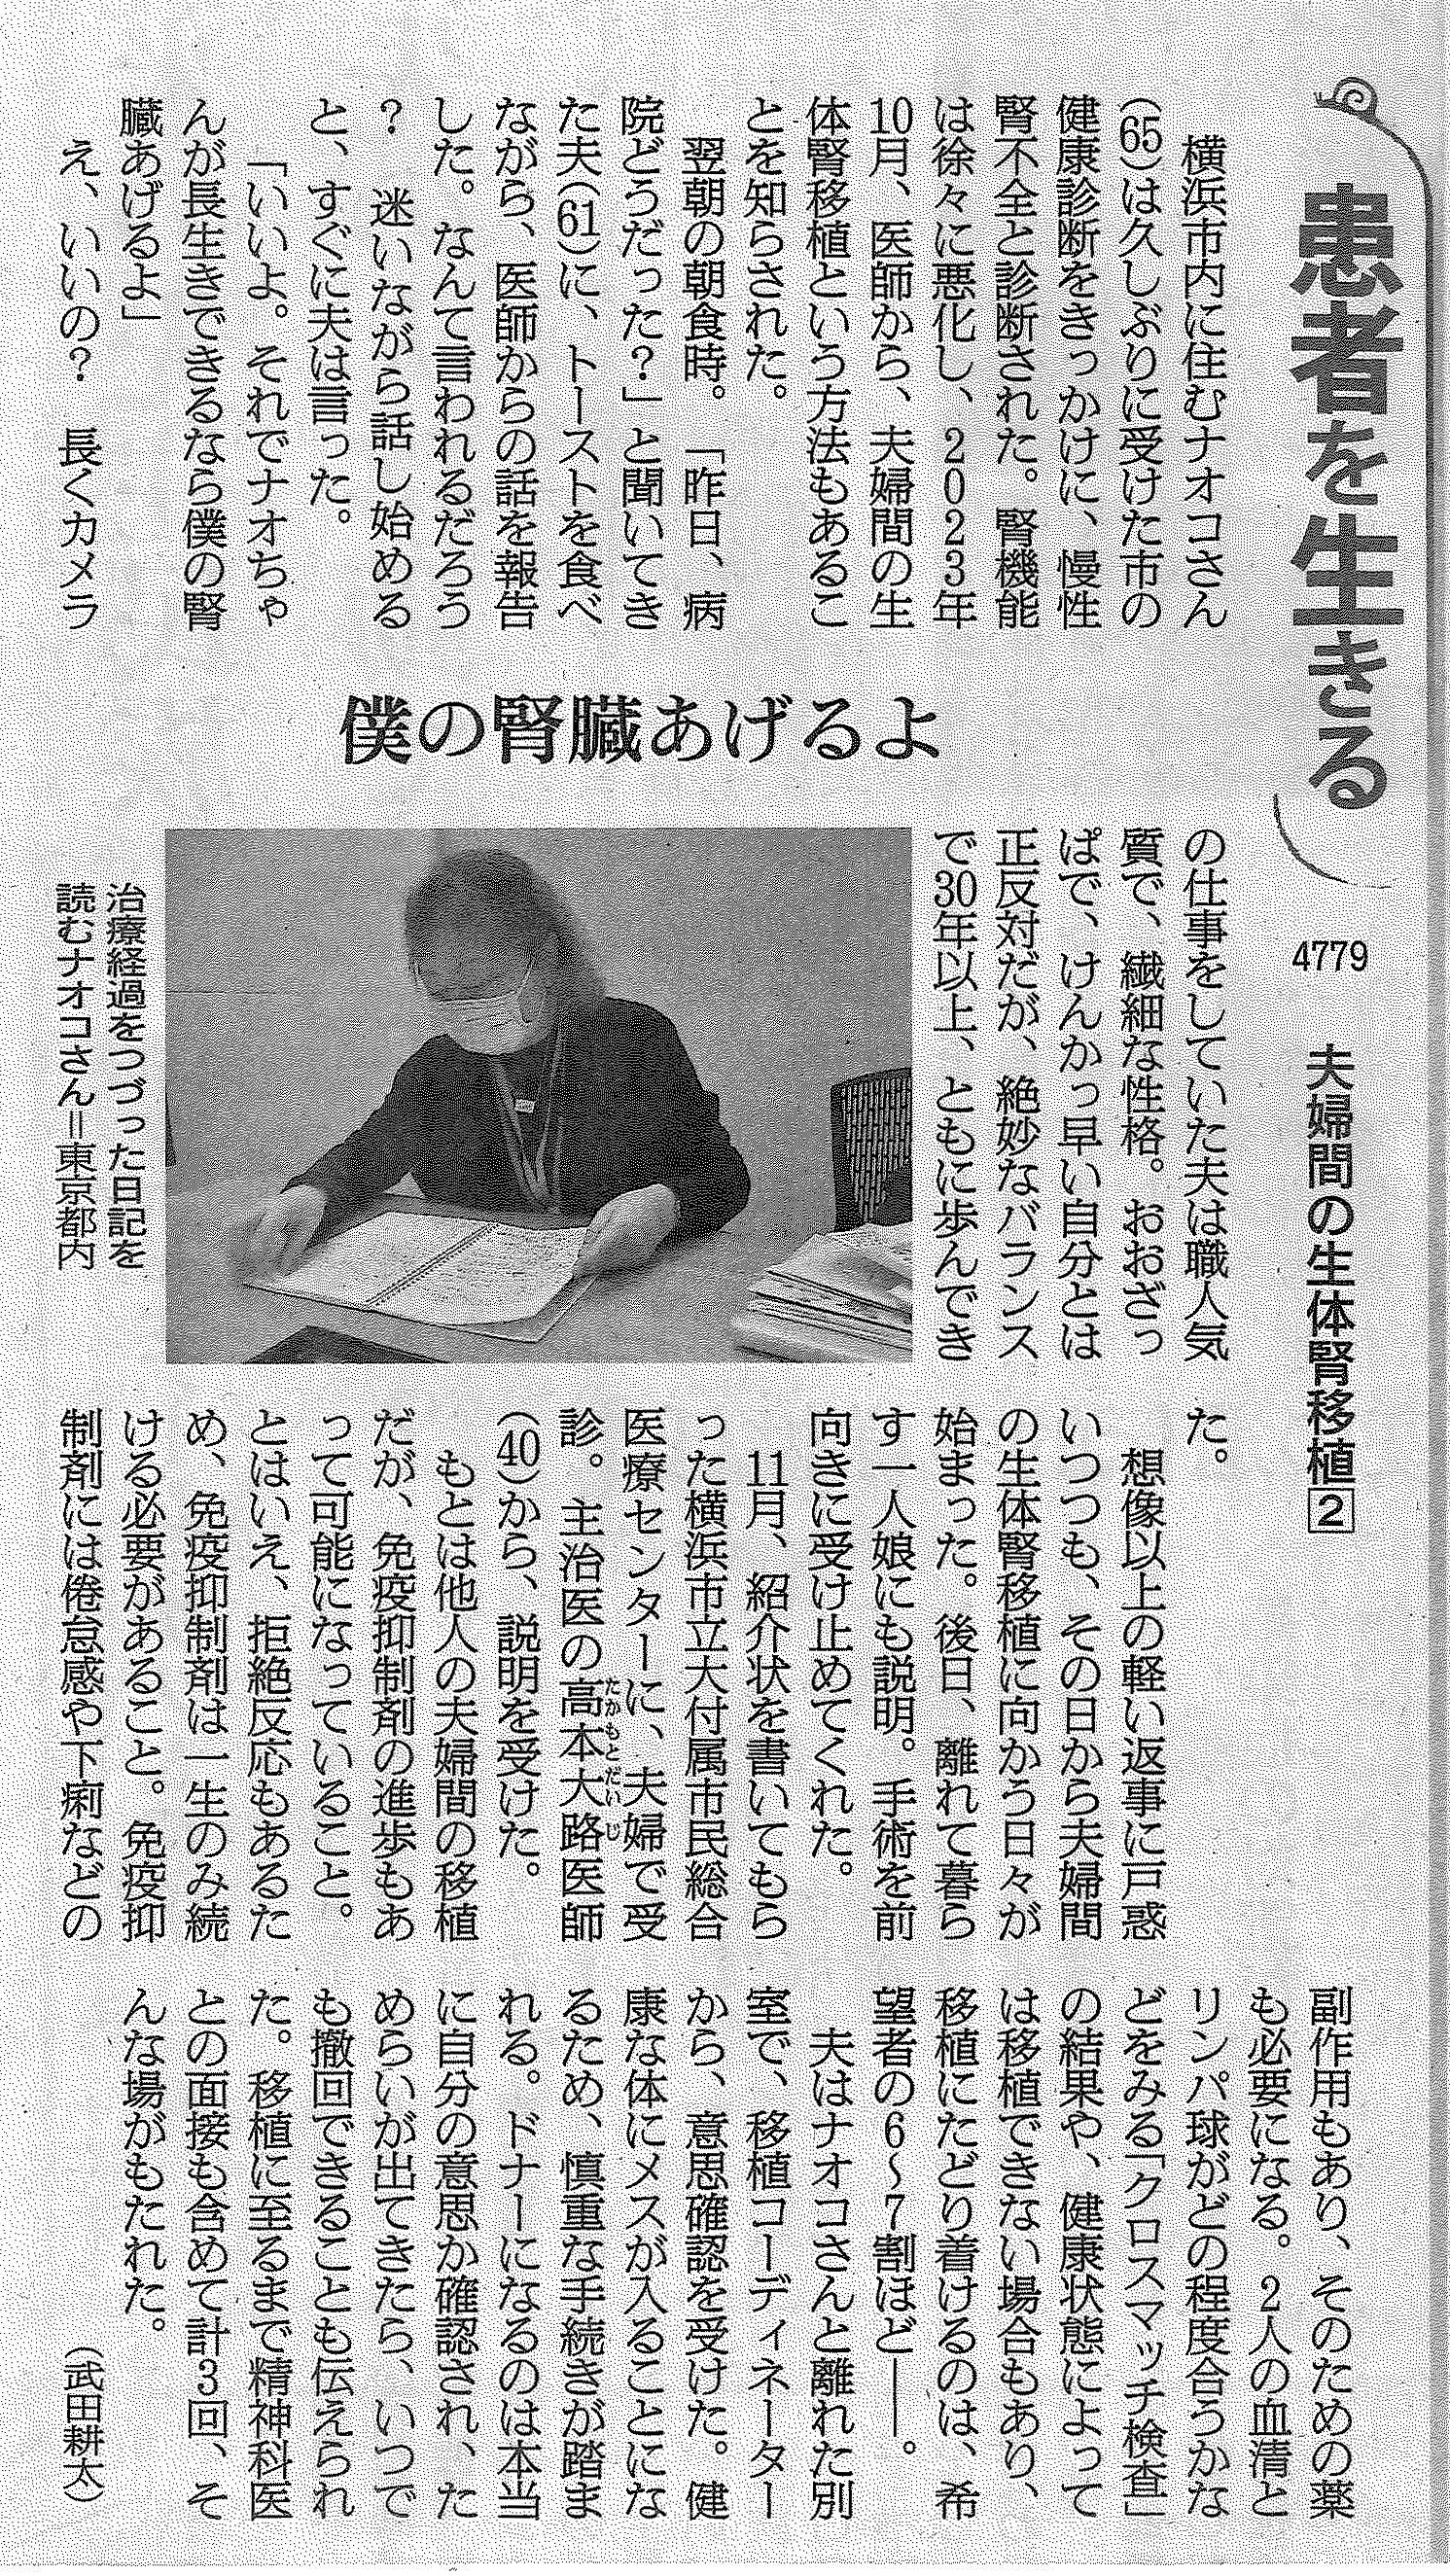 患者を生きる
4779
夫婦間の生体腎移植2
僕の腎臓あげるよ
横浜市内に住むナオコさん
(65)は久しぶりに受けた市の
健康診断をきっかけに、慢性
腎不全と診断された。腎機能
は徐々に悪化し、2023年
10月、医師から、夫婦間の生
体腎移植という方法もあるこ
とを知らされた。
翌朝の朝食時。「昨日、病
院どうだった?」と聞いてき
た夫(61)に、トーストを食べ
ながら、医師からの話を報告
した。なんて言われるだろう
? 迷いながら話し始める
と、すぐに夫は言った。
「いいよ。それでナオちゃ
んが長生きできるなら僕の腎
臓あげるよ」
え、いいの? 長くカメラ
の仕事をしていた夫は職人気
質で、繊細な性格。おおざっ
ぱで、けんかっ早い自分とは
正反対だが、絶妙なバランス
で30年以上、ともに歩んでき
た。
想像以上の軽い返事に戸惑
いつつも、その日から夫婦間
の生体腎移植に向かう日々が
始まった。後日、離れて暮ら
す一人娘にも説明。手術を前
向きに受け止めてくれた。
11月、紹介状を書いてもら
った横浜市立大付属市民総合
医療センターに、夫婦で受
診。主治医の高本大路医師
たかもとだいじ
(40)から、説明を受けた。
もとは他人の夫婦間の移植
だが、免疫抑制剤の進歩もあ
って可能になっていること。
とはいえ、拒絶反応もあるた
め、免疫抑制剤は一生のみ続
ける必要があること。免疫抑
制剤には倦怠感や下痢などの
副作用もあり、そのための薬
も必要になる。2人の血清と
リンパ球がどの程度合うかな
どをみる「クロスマッチ検査」
の結果や、健康状態によって
は移植できない場合もあり、
移植にたどり着けるのは、希
望者の6～7割ほど――。
夫はナオコさんと離れた別
室で、移植コーディネーター
から、意思確認を受けた。健
康な体にメスが入ることにな
るため、慎重な手続きが踏ま
れる。ドナーになるのは本当
に自分の意思か確認され、た
めらいが出てきたら、いつで
も撤回できることも伝えられ
た。移植に至るまで精神科医
との面接も含めて計3回、そ
んな場がもたれた。
(武田耕太)
治療経過をつづった日記を
読むナオコさん＝東京都内